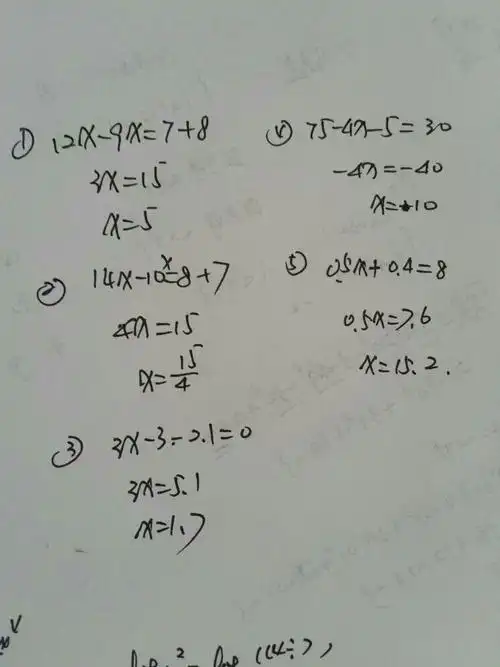 ① 12x-9x=7+8
3x=15
x=5
② 14x-10x=8+7
4x=15
x=15/4
③ 3x-3-2.1=0
3x=5.1
x=1.7
④ 75-4x-5=30
-4x=-40
x=10
⑤ 0.5x+0.4=8
0.5x=7.6
x=15.2.